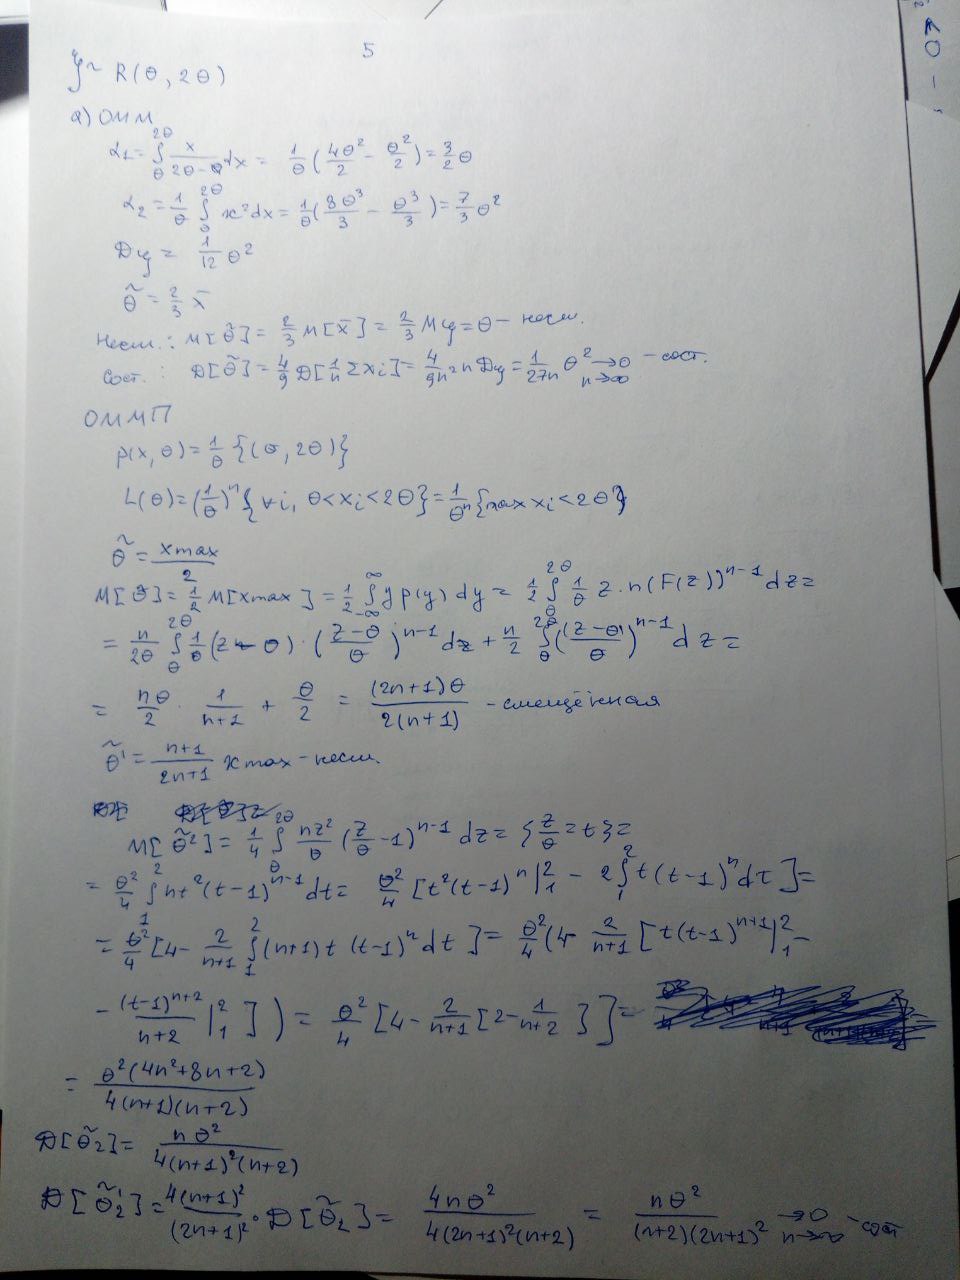 5
ξ ~ R(θ, 2θ)
а) ОММ
α₁ = ∫_θ^{2θ} x/(2θ-θ) dx = 1/θ (4θ²/2 - θ²/2) = 3/2 θ
α₂ = 1/θ ∫_θ^{2θ} x² dx = 1/θ (8θ³/3 - θ³/3) = 7/3 θ²
Dξ = 1/12 θ²
θ̃ = 2/3 x̄
Несм.: M[θ̃] = 2/3 M[x̄] = 2/3 Mξ = θ - несм.
Сост.: D[θ̃] = 4/9 D[1/n Σxi] = 4/9n² n Dξ = 1/27n θ² → 0 n→∞ - сост.
ОММП
p(x, θ) = 1/θ {(θ, 2θ)}
L(θ) = (1/θ)ⁿ {∀i, θ < xi < 2θ} = 1/θⁿ {max xi < 2θ}
θ̃ = xmax/2
M[θ̃] = 1/2 M[xmax] = 1/2 ∫_{-∞}^{∞} y p(y) dy = 1/2 ∫_θ^{2θ} 1/θ z·n(F(z))^{n-1} dz =
= n/2θ ∫_θ^{2θ} 1/θ (z-θ)·((z-θ)/θ)^{n-1} dz + n/2 ∫_θ^{2θ} ((z-θ)/θ)^{n-1} dz =
= nθ/2 · 1/(n+1) + θ/2 = (2n+1)θ/2(n+1) - смещённая
θ̃' = (n+1)/(2n+1) xmax - несм.
M[θ̃²] = 1/4 ∫_θ^{2θ} nz²/θ (z/θ - 1)^{n-1} dz = {z/θ = t} =
= θ²/4 ∫_1^2 nt²(t-1)^{n-1} dt = θ²/4 [t²(t-1)ⁿ|₁² - 2∫_1^2 t(t-1)ⁿ dτ] =
= θ²/4 [4 - 2/(n+1) ∫_1^2 (n+1) t (t-1)ⁿ dt] = θ²/4 (4 - 2/(n+1) [t(t-1)^{n+1}|₁² -
- (t-1)^{n+2}/(n+2) |₁²]) = θ²/4 [4 - 2/(n+1) [2 - 1/(n+2)]] =
= θ²(4n²+8n+2)/4(n+1)(n+2)
D[θ̃₂] = nθ²/4(n+1)²(n+2)
D[θ̃₂'] = 4(n+1)²/(2n+1)² · D[θ̃₂] = 4nθ²/4(2n+1)²(n+2) = nθ²/(n+2)(2n+1)² → 0 n→∞ - сост